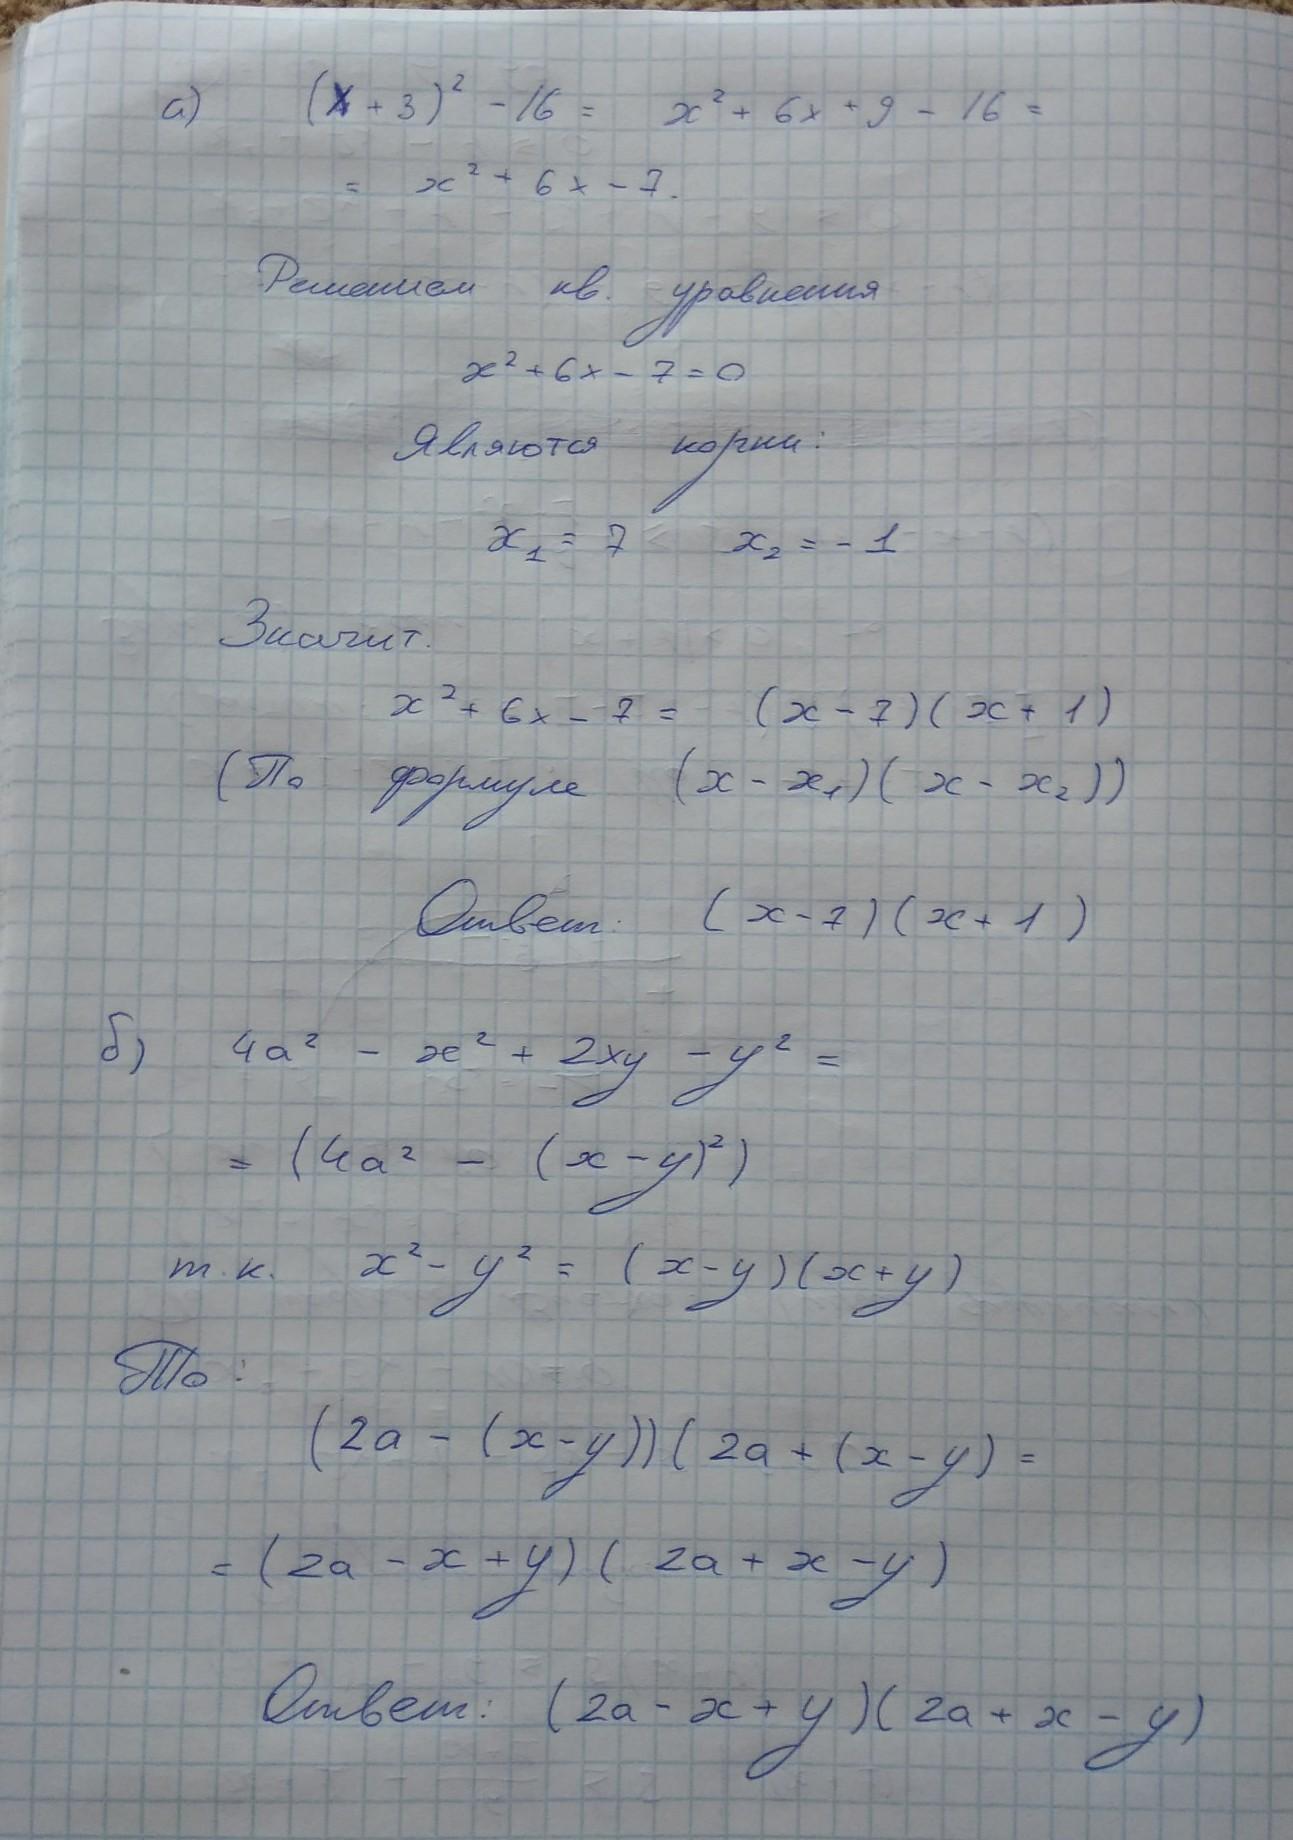 а) (x + 3)² - 16 = x² + 6x + 9 - 16 =
= x² + 6x - 7.
Решением кв. уравнения
x² + 6x - 7 = 0
Являются корни:
x₁ = 7 x₂ = - 1
Значит.
x² + 6x - 7 = (x - 7)(x + 1)
(По формуле (x - x₁)(x - x₂))
Ответ: (x - 7)(x + 1)
б) 4a² - x² + 2xy - y² =
= (4a² - (x - y)²)
т.к. x² - y² = (x - y)(x + y)
То:
(2a - (x - y))(2a + (x - y) =
= (2a - x + y)(2a + x - y)
Ответ: (2a - x + y)(2a + x - y)